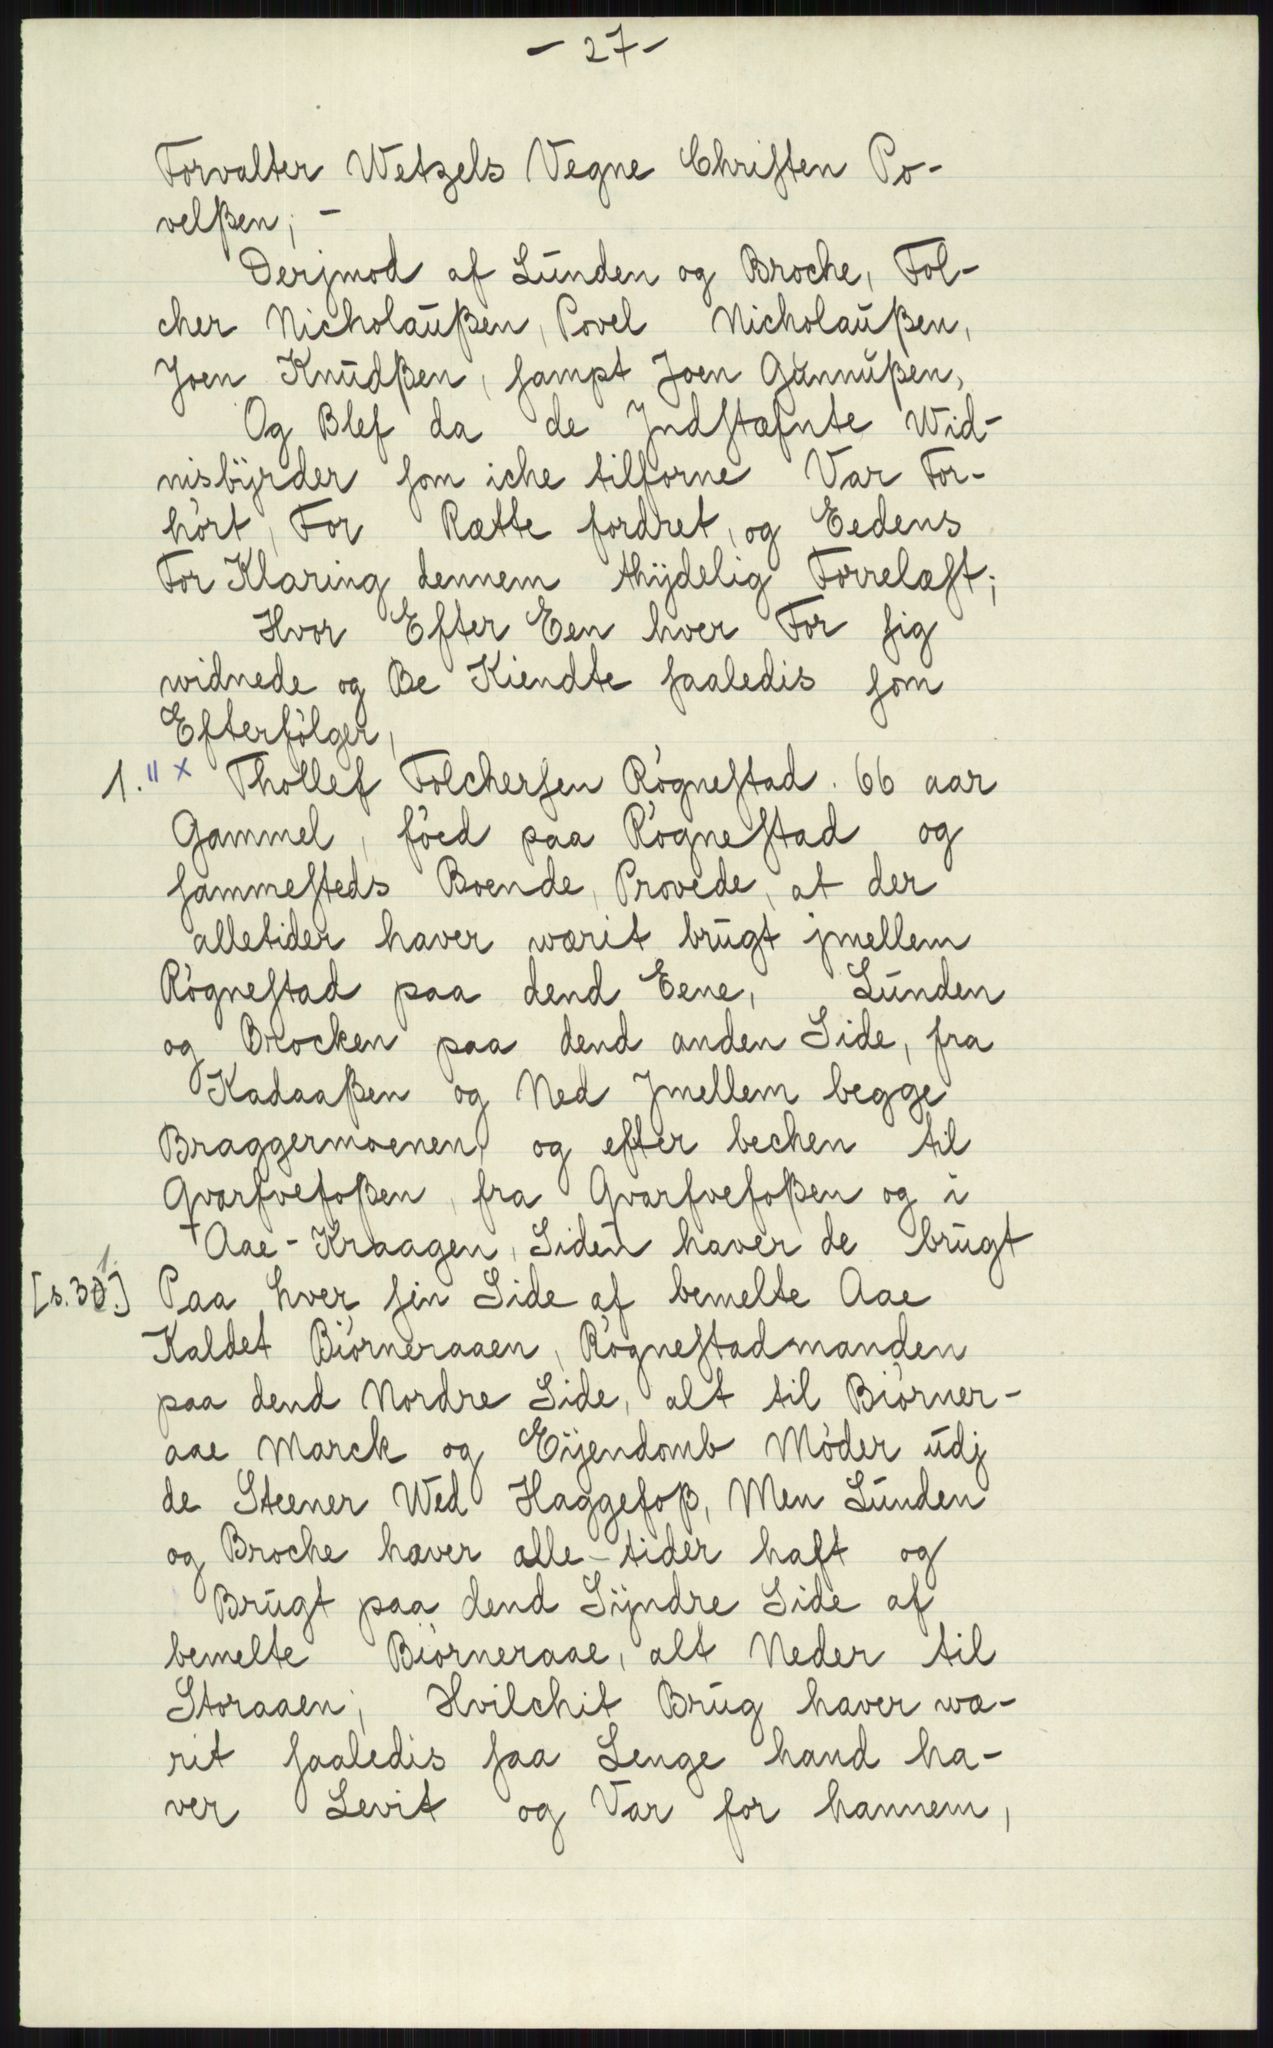 - 27 -
Forvalter Wetzels Vegne Christen Po-
velßen; -
Derjmod af Lunden og Broche, Fol-
cher Nicholaußen, Povel Nicholaußen,
Joen Knudßen, sampt Joen Gunnußen,
Og Blef da de Jndstæfnte Wid-
nisbÿrder som iche tilforne Var For-
hørt, For Rætte fordret, og Eedens
For Klaring dennem thÿdelig Forrelæst;
Hvor Efter Een hver For sig
widnede og Be Kiendte saaledis som
Efterfølger,
1. " x Thollef Folchersen Røgnestad. 66 aar
Gammel, føed paa Røgnestad og
sammesteds Boende, Provede, at der
alletider haver wærit brugt jmellem
Røgnestad paa dend Eene, Lunden
og Brocken paa dend anden Side, fra
Kadaaßen og Ned Jmellem begge
Braggermoenen og efter bechen til
Gvarfvefoßen, fra Gvarfvefoßen og i
Aae-Kraagen, Siden haver de brugt
[s. 31.] Paa hver sin Side af bemelte Aae
Kaldet Biørneraaen, Røgnestadmanden
paa dend Nordre Side, alt til Biørner-
aae Marck og Eÿendomb Møder udj
de Steener Wed Haggefoß, Men Lunden
og Broche haver alle-tider haft og
Brugt paa dend Sÿndre Side af
bemelte Biørneraae, alt Neder til
Storaaen; Hvilchit Brug haver wæ-
rit saaledis saa Lenge hand ha-
ver Levit og Var for hannem,